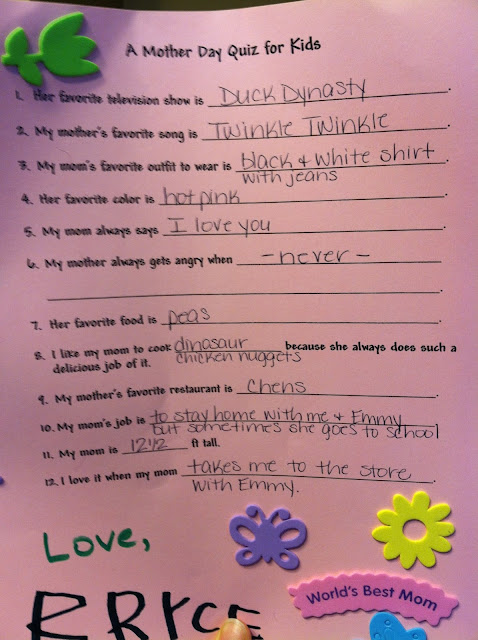 A Mother Day Quiz for Kids
1. Her favorite television show is Duck Dynasty.
2. My mother's favorite song is Twinkle Twinkle.
3. My mom's favorite outfit to wear is black & white shirt.
with jeans
4. Her favorite color is hot pink.
5. My mom always says I love you.
6. My mother always gets angry when - never -
7. Her favorite food is peas.
8. I like my mom to cook dinosaur because she always does such a
delicious job of it. chicken nuggets
9. My mother's favorite restaurant is Chens.
10. My mom's job is to stay home with me & Emmy.
but sometimes she goes to school
11. My mom is 12 1/2 ft tall.
12. I love it when my mom takes me to the store.
with Emmy.
Love,
BRYCE
World's Best Mom